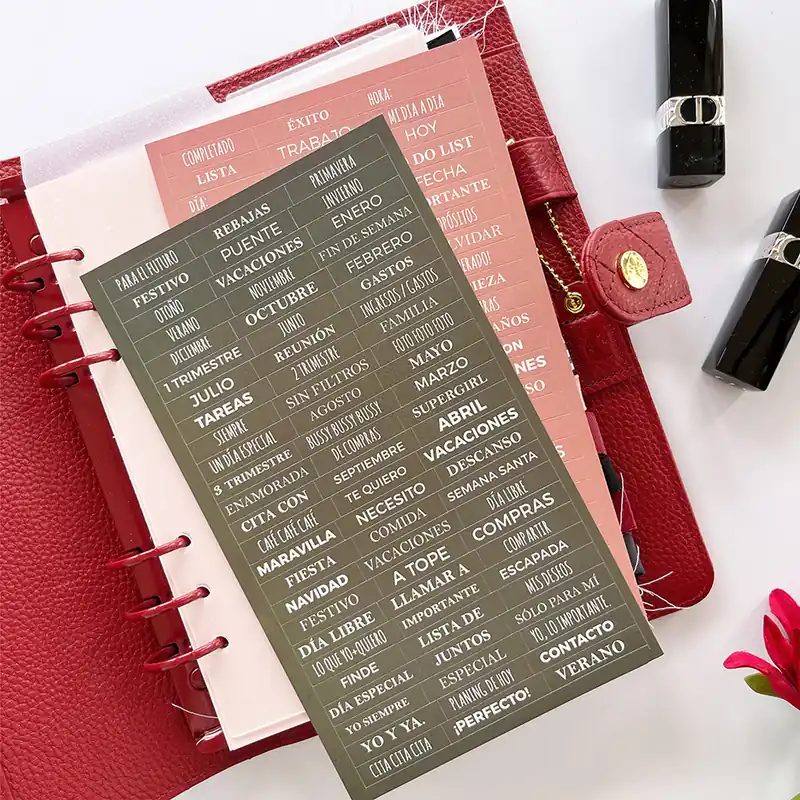 COMPLETADO
ÉXITO
HORA:
LISTA
TRABAJO
MI DIA A DIA
DÍA:
HOY
DO LIST
FECHA
ORTANTE
OPÓSITOS
LVIDAR
ERADO!
IEZA
RAS
AÑOS
ON
NES
SO
S
PARA EL FUTURO
REBAJAS
PRIMAVERA
FESTIVO
PUENTE
INVIERNO
OTOÑO
VACACIONES
ENERO
VERANO
NOVIEMBRE
FIN DE SEMANA
DICIEMBRE
OCTUBRE
FEBRERO
1 TRIMESTRE
JUNIO
GASTOS
JULIO
REUNIÓN
INGRESOS / GASTOS
TAREAS
2 TRIMESTRE
FAMILIA
SIEMPRE
SIN FILTROS
FOTO FOTO FOTO
UN DÍA ESPECIAL
AGOSTO
MAYO
3 TRIMESTRE
BUSSY BUSSY BUSSY
MARZO
ENAMORADA
DE COMPRAS
SUPERGIRL
CITA CON
SEPTIEMBRE
ABRIL
CAFÉ CAFÉ CAFÉ
TE QUIERO
VACACIONES
MARAVILLA
NECESITO
DESCANSO
FIESTA
COMIDA
SEMANA SANTA
NAVIDAD
VACACIONES
DÍA LIBRE
FESTIVO
A TOPE
COMPRAS
DÍA LIBRE
LLAMAR A
COMPARTIR
LO QUE YO+QUIERO
IMPORTANTE
ESCAPADA
FINDE
LISTA DE
MIS DESEOS
DÍA ESPECIAL
JUNTOS
SÓLO PARA MÍ
YO SIEMPRE
ESPECIAL
YO, LO IMPORTANTE.
YO Y YA.
PLANING DE HOY
CONTACTO
CITA CITA CITA
¡PERFECTO!
VERANO